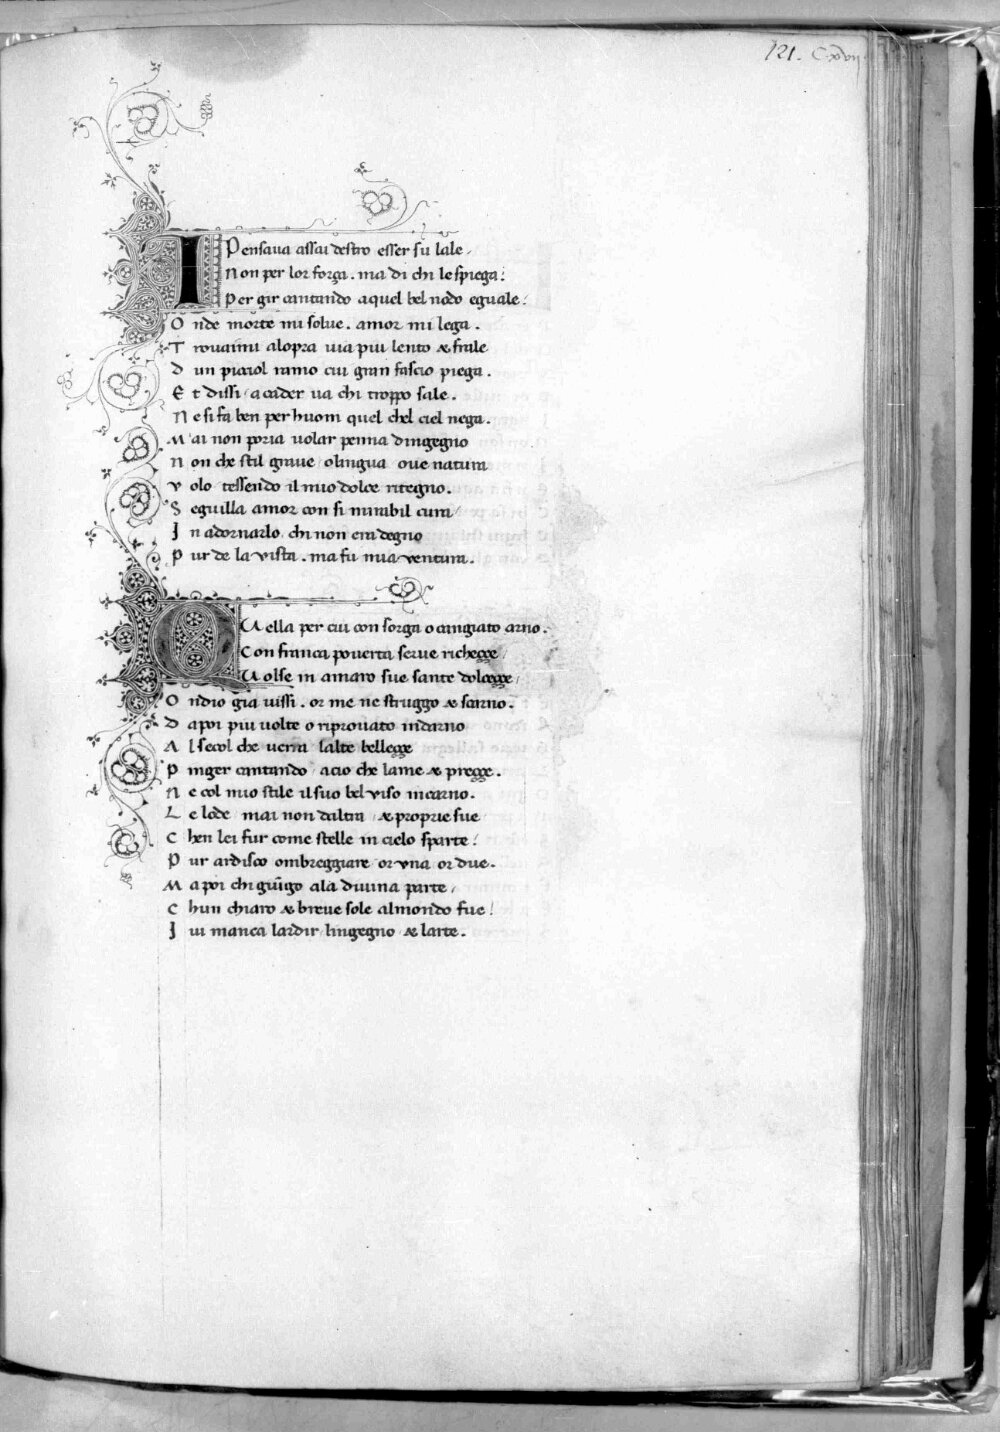 121. C xvii
I Pensaua assai destro esser su lale,
Non per lor forza. ma di chi le spiega:
Per gir cantando a quel bel nodo eguale:
Onde morte mi solue. amor mi lega.
Trouaimi alopra uia piu lento & frale
Dun picciol ramo cui gran fascio piega.
Et dissi / a cader ua chi troppo sale.
Ne si fa ben per huom quel chel ciel nega.
Mai non poria uolar penna dingegno
Non che stil graue olingua oue natura
Volo tessendo il mio dolce ritegno.
Seguilla amor con si mirabil cura
In adornarlo, chi non era degno
Pur de la vista. ma fu mia ventura.
QUella per cui con sorga o cangiato arno.
Con franca pouerta serue richezze /
Uolse in amaro sue sante dolcezze /
Ondio gia uissi. or me ne struggo & scarno.
Da poi piu uolte o riprouato indarno
Al secol che uerra lalte bellezze
Pinger cantando / acio che lame & prezze.
Ne col mio stile il suo bel viso incarno.
Le lode mai non daltra / & proprie sue
Chen lei fur come stelle in cielo sparte:
Pur ardisco ombreggiare or vna or due.
Ma poi chi giūgo ala diuina parte,
Chun chiaro & breue sole almondo fue:
Iui manca lardir lingegno & larte.